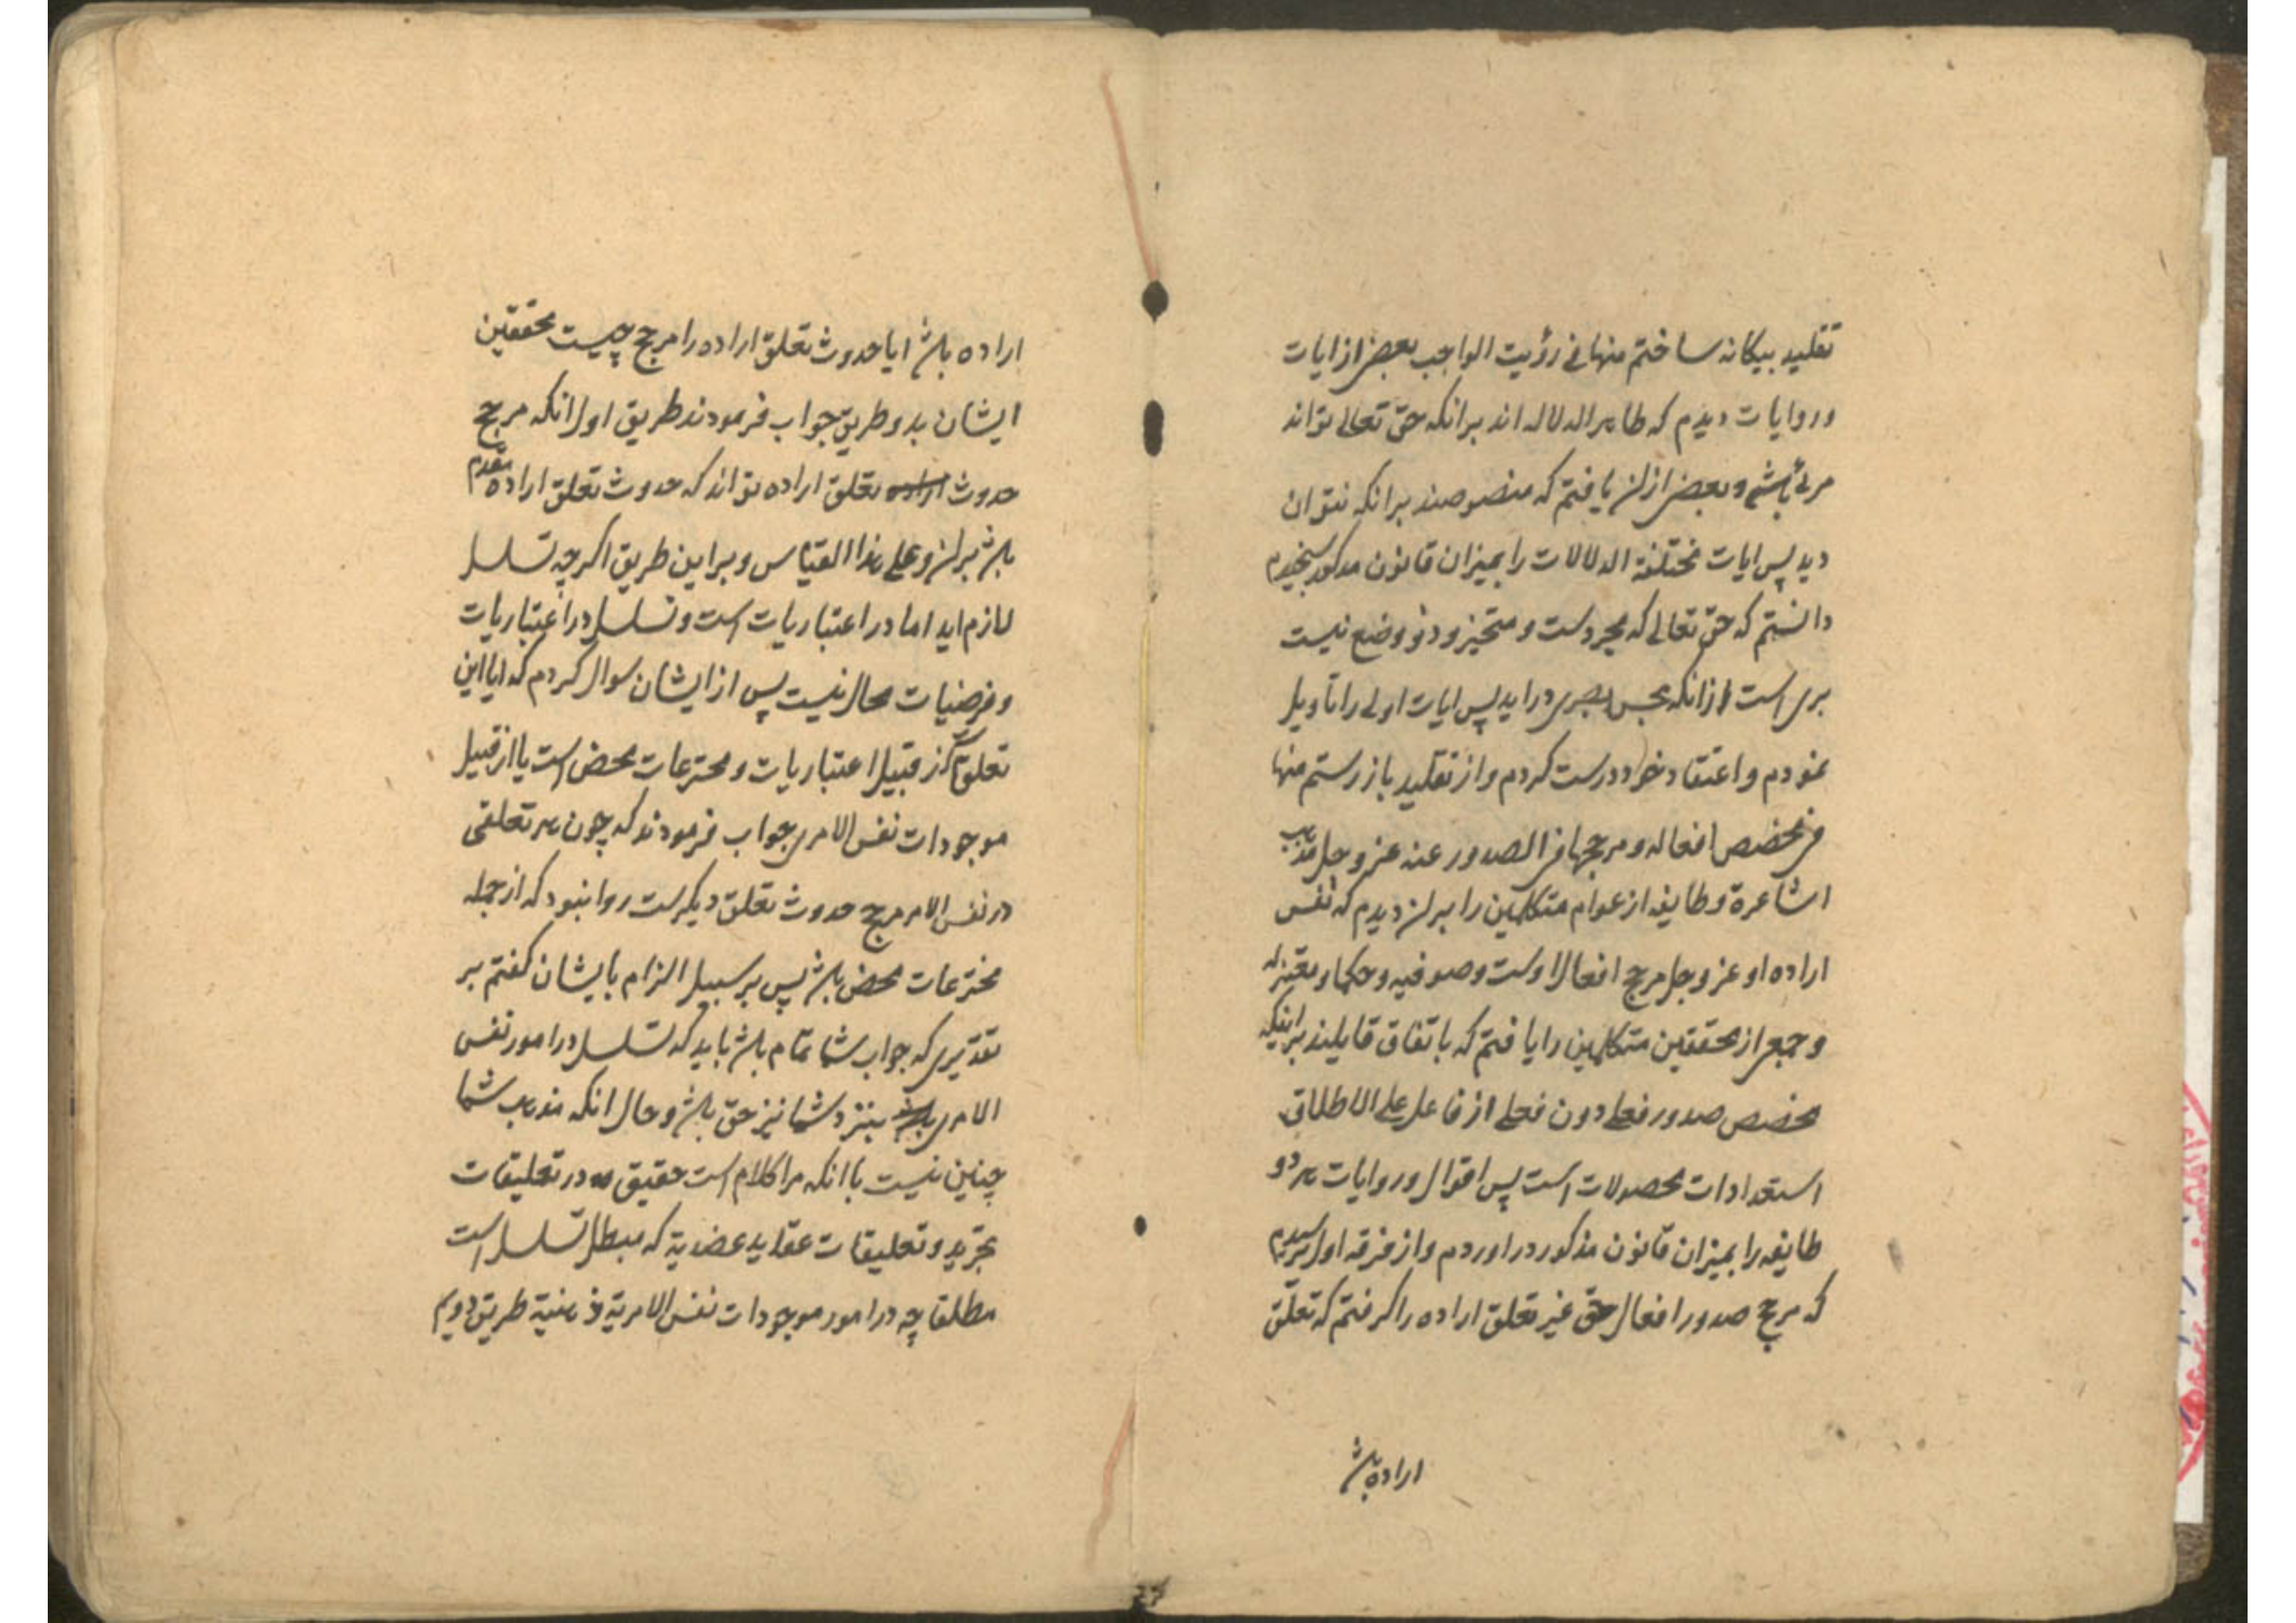 تقلید بیکانه ساختم منها فی رؤیت الواجب بعضی از ایات
و روایات دیدم که ظاهر الدلاله اند برانکه حق تعالی تواند
مرئی باشد و بعضی ازان یافتم که منصوصند برانکه نتوان
دید پس ایات مختلفة الدلالات را بمیزان قانون مذکور سنجیدم
دانستم که حق تعالی که مجردست و متحیز و ذو وضع نیست
بری است ازانکه بحس بصری دراید پس ایات اولی را تاویل
نمودم و اعتقاد خود درست کردم و از تقلید باز رستم منها
فی مخصص افعاله و مرجحها فی الصدور عنه عز و جل مذهب
اشاعرة و طایفه از عوام متکلمین را بران دیدم که نفس
اراده او عز و جل مرجح افعال اوست و صوفیه و حکما و معتزله
و جمعی از محققین متکلمین را یافتم که باتفاق قایلند براینکه
مخصص صدور فعلی دون فعلی از فاعل علی الاطلاق
استعدادات محصولات است پس اقوال و روایات هر دو
طایفه را بمیزان قانون مذکور دراوردم و از فرقه اول پرسیدم
که مرجح صدور افعال حق غیر تعلق اراده را کرفتم که تعلق
اراده باشد
اراده باشد ایا حدوث تعلق اراده را مرجح چیست محققین
ایشان بدو طریق جواب فرمودند طریق اول انکه مرجح
حدوث تعلق اراده تواند که حدوث تعلق اراده مقدم
باشد بران و علی هذا القیاس و براین طریق اکرچه تسلسل
لازم اید اما در اعتباریات است و تسلسل در اعتباریات
و فرضیات محال نیست پس از ایشان سوال کردم که ایا این
تعلقات از قبیل اعتباریات و مخترعات محض است یا از قبیل
موجودات نفس الامری جواب فرمودند که چون هر تعلقی
در نفس الامر مرجح حدوث تعلق دیکرست روا نبود که از جمله
مخترعات محض باشد پس بر سبیل الزام بایشان کفتم بر
تقدیری که جواب شما تمام باشد باید که تسلسل در امور نفس
الامری بنزد شما نیز حق باشد و حال انکه مذهب شما
چنین نیست با انکه مرا کلام است حقیق در تعلیقات
تجرید و تعلیقات عقاید عضدیة که مبطل تسلسل است
مطلقا چه در امور موجودات نفس الامریة ذهنیة طریق دویم